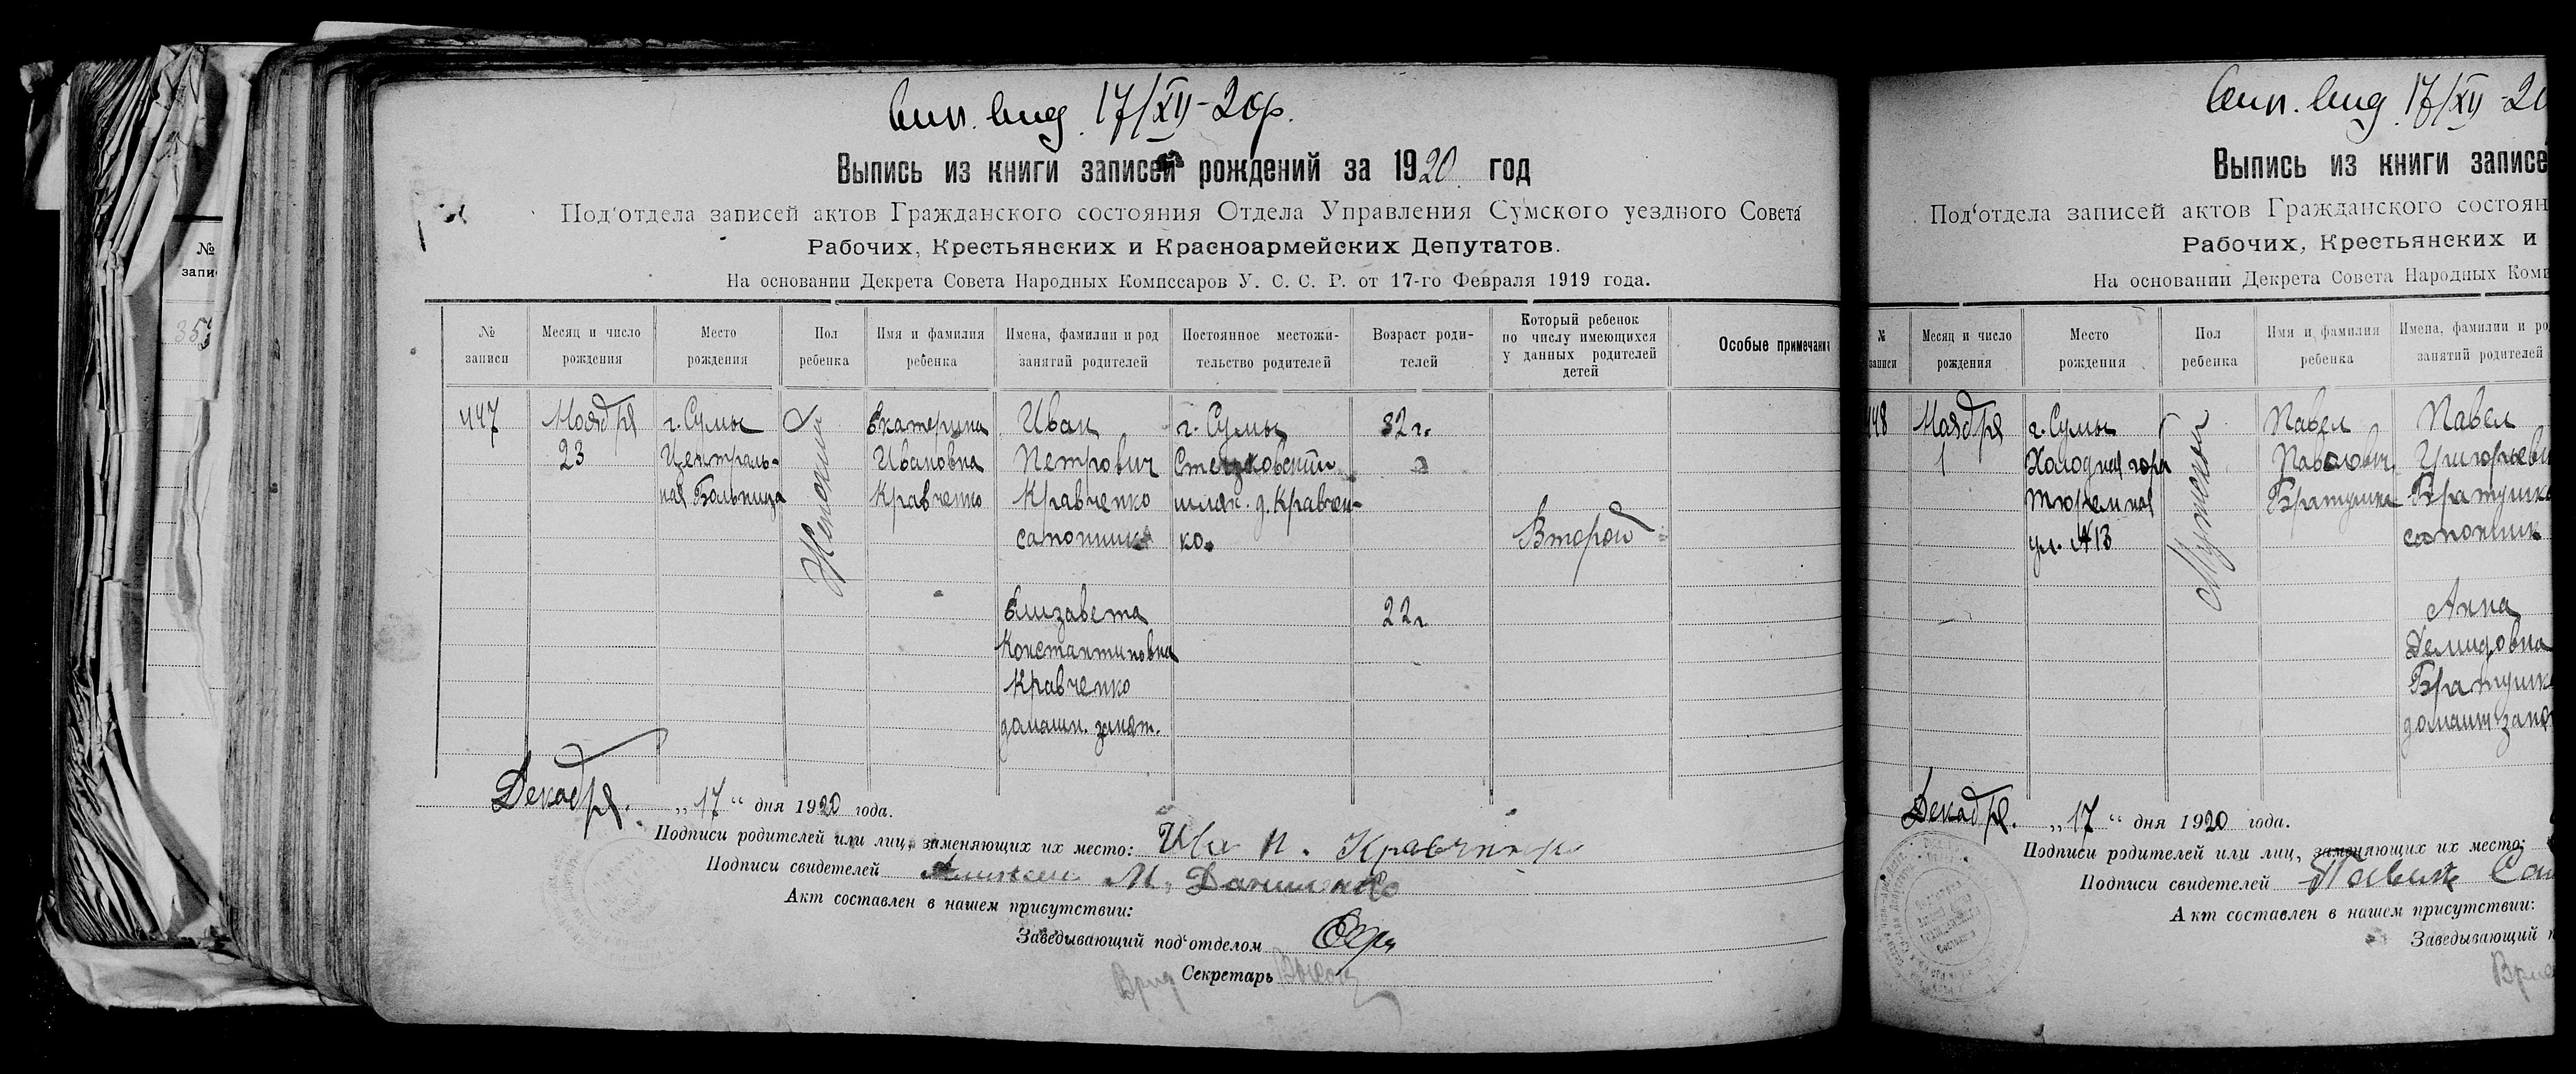 17/XII-20г.
Выпись из книги записей рождений за 1920 год
Под'отдела записей актов Гражданского состояния Отдела Управления Сумского уездного Совета
Рабочих, Крестьянских и Красноармейских Депутатов.
На основании Декрета Совета Народных Комиссаров У. С. С. Р. от 17-го Февраля 1919 года.
№ записи
Месяц и число рождения
Место рождения
Пол ребенка
Имя и фамилия ребенка
Имена, фамилии и род занятий родителей
Постоянное местожительство родителей
Возраст родителей
Который ребенок по числу имеющихся у данных родителей детей
Особые примечания
447
Ноября
23
г. Сумы
Централь-
ная Больница
Женский
Екатерина
Ивановна
Кравченко
Иван
Петрович
Кравченко
сапожник
Елизавета
Константиновна
Кравченко
домашн. занят.
г. Сумы
шлях. д. Кравчен-
ко.
32 г.
22 г.
Второй
Декабря. „17“ дня 1920 года.
Подписи родителей или лиц, заменяющих их место: Ива П. Кравченко
Подписи свидетелей М. Даниленко
Акт составлен в нашем присутствии:
Заведывающий под'отделом
Врид Секретарь
17/XII-20
Выпись из книги записе
Под'отдела записей актов Гражданского состоян
Рабочих, Крестьянских и
На основании Декрета Совета Народных Коми
№ записи
Месяц и число рождения
Место рождения
Пол ребенка
Имя и фамилия ребенка
Имена, фамилии и ро
занятий родителей
448
Ноября
1
г. Сумы
Холодная гора
Тюремная
ул. №13
Мужской
Павел
Павлович
Братушка
Павел
Григорьеви
Братушка
сапожник
Анна
Демидовна
Братушка
домашн. занят
Декабря. „17“ дня 1920 года.
Подписи родителей или лиц, заменяющих их место:
Подписи свидетелей
Акт составлен в нашем присутствии:
Заведывающий п
Врид
№
запи
353